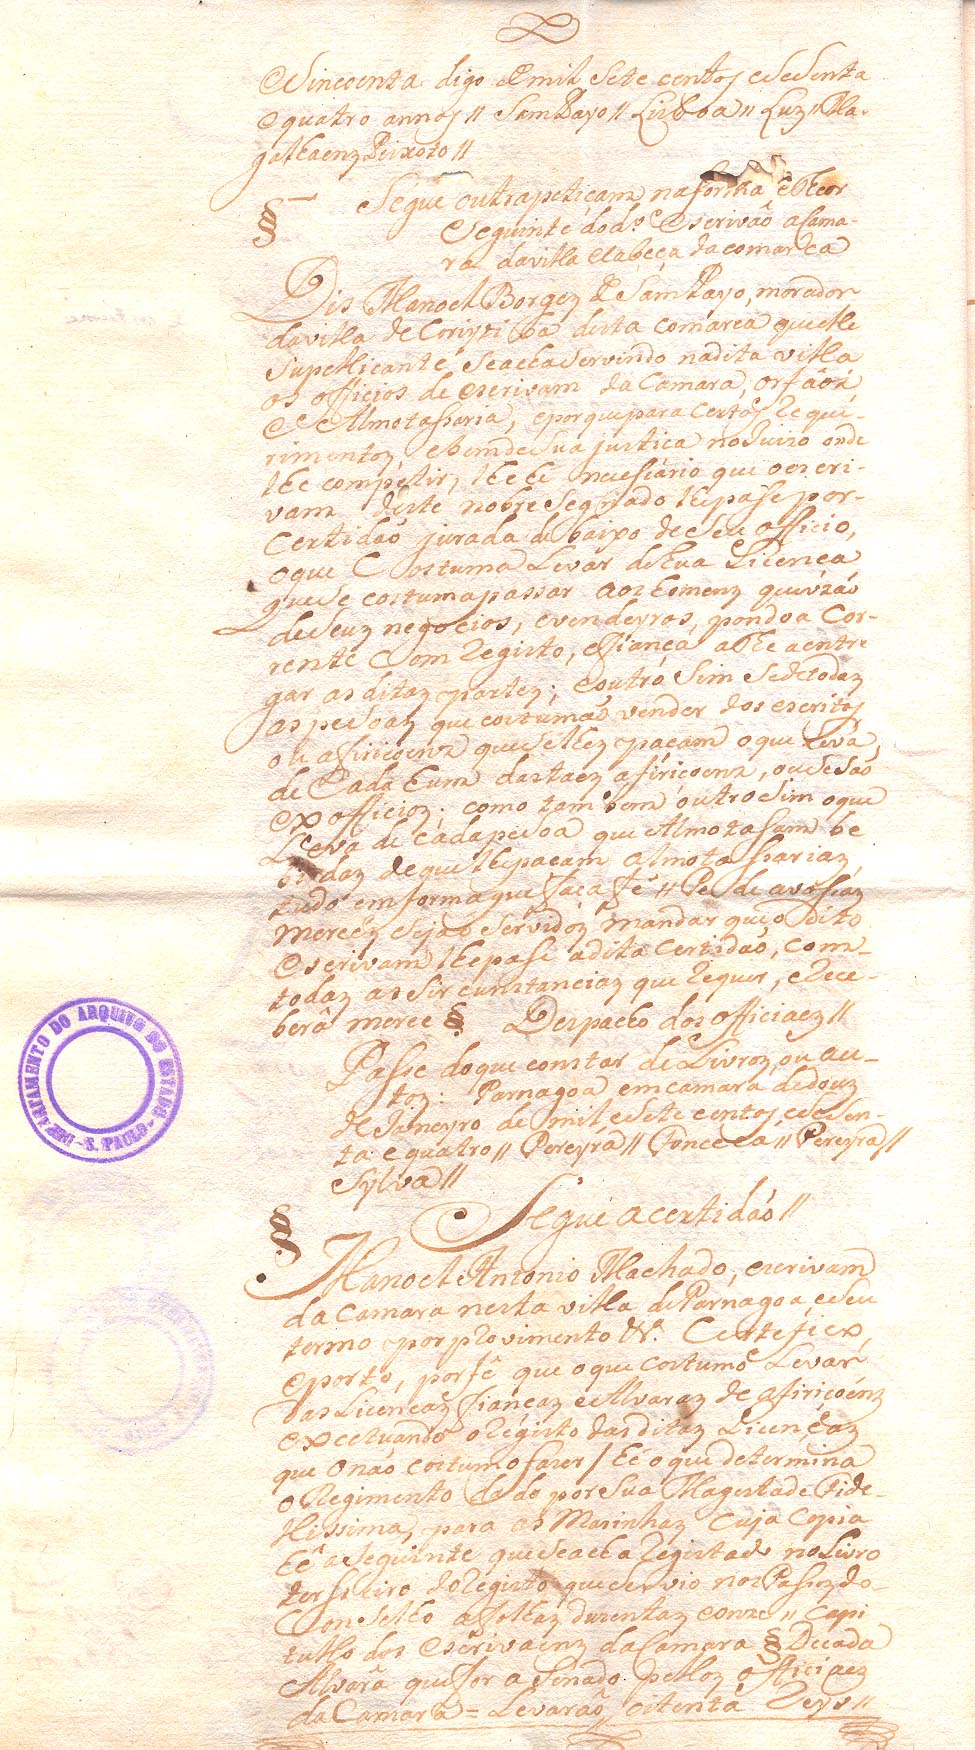 Sincoenta digo Emil Sete centos eseSenta
equatro annos // Sam Payo // Lisboa // Luz // Ma-
galhaenz Peixoto //
§ Segue outrapeticam na forma e theor
Seguinte do d.º Escrivaõ aCama-
ra davilla Cabeça da comarca
Dis Manoel Borgez de Sam Payo, morador
davilla de Corityba desta comarca que elle
Supellicante, Seacha Servindo nadita villa
os officios de escrivam da Camara, orfâos
e Almotassaria, eporque para certos reque-
rimentoz, ebem de Sua justica noJuizo onde
lhe competir, lhe hé necessario que oescri-
vam deste nobre Segnado lhe passe por-
Certidaõ jurada de baixo de Seu officio,
oque Costuma Levar de huá Licenca
que Se costuma passar aos homenz que vzaõ
de Seuz negocios, evendeyros, pondoa Cor-
rente Com registo, efianca athe aentre
gar as ditaz partez; eoutro Sim Se de todaz
as pesoaz que costumaõ vender dos escritos
ou afiricoenz que Se lhez paçam oque Leva,
de Cada huma dastaez afiricoenz, ou Se saõ
ex officioz; como tam bem outro Sim oque
Leva de cada pesoa que Almotassam be
bidaz de que lhe pacam almotassariaz
tudo em forma que faca fé // Pe de avossaz
mercêz Sejaõ Servidoz mandar que o dito
escrivam lhe passe adita certidaõ, com-
todaz as Sircunstanciaz que requer, e rece-
berâ merce § Despacho dos officiaez //
Passe do que constar de Livroz, ou au-
toz: Parnagoa em camara de douz
de Janeyro de mil e Sete centos eseSen-
ta e quatro // Pereyra // Fonceca // Pereyra //
Sylva //
§ Segue acertidaõ //
Manoel Antonio Machado, escrivam
da Camara nesta villa de Parnagoa eseu
termo por provimento &ª. Certefico,
eporto, por fê que oque costumo Levar
das Licencaz fiancaz e Alvaraz de afiriçoénz
excetuando o registo das ditaz Licencaz
que o naõ costumo faser / hé o que determina
o Regimento dado por Sua Magestade Fide-
lissima, para as Marinhaz cuja Copia
hé aSeguinte que Seacha registado no Livro
terseiro do registo que Servio nos Passoz do-
Conselho afolhaz duzentaz eonze // Capi
tullo dos escrivaenz da Camara § De cada
Alvarâ que for a Senado pelloz officiaez
da Camara = Levaraõ, oitenta reys //
DEPARTAMENTO DO ARQUIVO DO ESTADO
S. PAULO